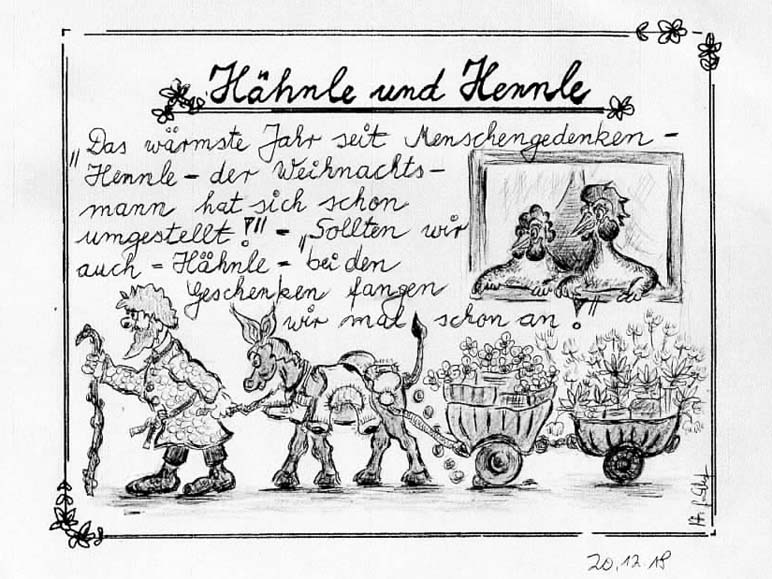 Hähnle und Hennle
„Das wärmste Jahr seit Menschengedenken -
Hennle - der Weihnachts-
mann hat sich schon
umgestellt!" - „Sollten wir
auch - Hähnle - bei den
Geschenken fangen
wir mal schon an!"
20.12.18